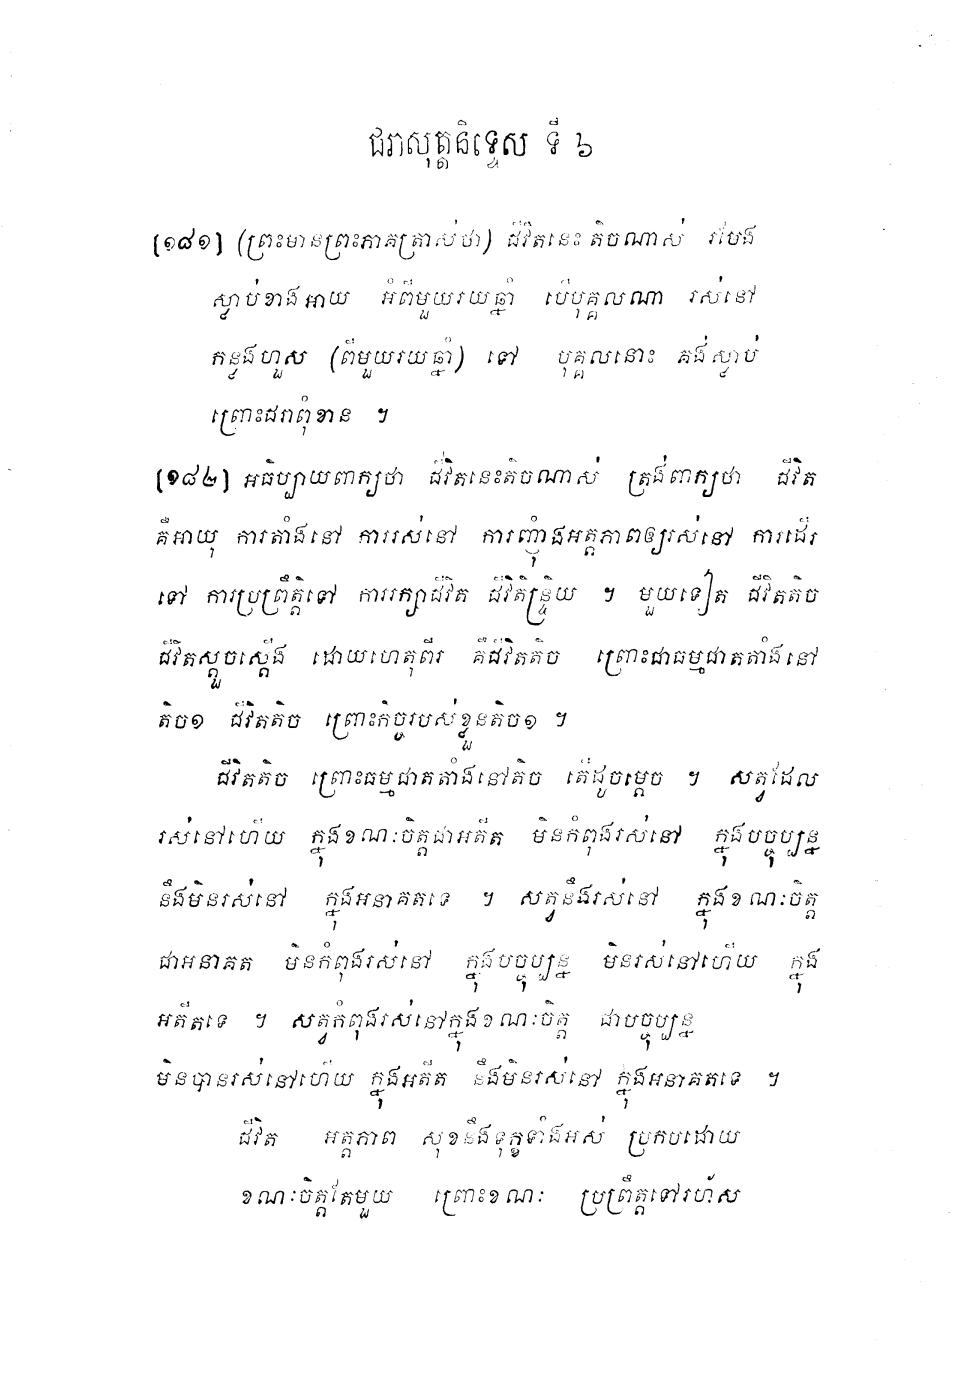 ជរាសុត្តនិទ្ទេស ទី ៦
[១៨១] (ព្រះមានព្រះភាគត្រាស់ថា) ជីវិតនេះ តិចណាស់ រមែង
ស្លាប់ខាងអាយ អំពីមួយរយឆ្នាំ បើបុគ្គលណា រស់នៅ
កន្លងហួស (ពីមួយរយឆ្នាំ) ទៅ បុគ្គលនោះ គង់ស្លាប់
ព្រោះជរាពុំខាន ។
[១៨២] អធិប្បាយពាក្យថា ជីវិតនេះតិចណាស់ ត្រង់ពាក្យថា ជីវិត
គឺអាយុ ការតាំងនៅ ការរស់នៅ ការញ៉ាំងអត្តភាពឲ្យរស់នៅ ការដើរ
ទៅ ការប្រព្រឹត្តិទៅ ការរក្សាជីវិត ជីវិតិន្ទ្រិយ ។ មួយទៀត ជីវិតតិច
ជីវិតស្តួចស្តើង ដោយហេតុពីរ គឺជីវិតតិច ព្រោះជាធម្មជាតតាំងនៅ
តិច១ ជីវិតតិច ព្រោះកិច្ចរបស់ខ្លួនតិច១ ។
ជីវិតតិច ព្រោះធម្មជាតតាំងនៅតិច តើដូចម្តេច ។ សត្វដែល
រស់នៅហើយ ក្នុងខណៈចិត្តជាអតីត មិនកំពុងរស់នៅ ក្នុងបច្ចុប្បន្ន
នឹងមិនរស់នៅ ក្នុងអនាគតទេ ។ សត្វនឹងរស់នៅ ក្នុងខណៈចិត្ត
ជាអនាគត មិនកំពុងរស់នៅ ក្នុងបច្ចុប្បន្ន មិនរស់នៅហើយ ក្នុង
អតីតទេ ។ សត្វកំពុងរស់នៅក្នុងខណៈចិត្ត ជាបច្ចុប្បន្ន
មិនបានរស់នៅហើយ ក្នុងអតីត នឹងមិនរស់នៅ ក្នុងអនាគតទេ ។
ជីវិត អត្តភាព សុខនឹងទុក្ខទាំងអស់ ប្រកបដោយ
ខណៈចិត្តតែមួយ ព្រោះខណៈ ប្រព្រឹត្តទៅរហ័ស